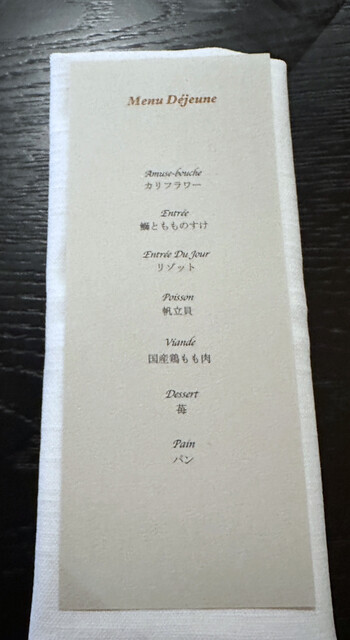 Menu Déjeune
Amuse-bouche
カリフラワー
Entrée
鰤ともものすけ
Entrée Du Jour
リゾット
Poisson
帆立貝
Viande
国産鶏もも肉
Dessert
苺
Pain
パン